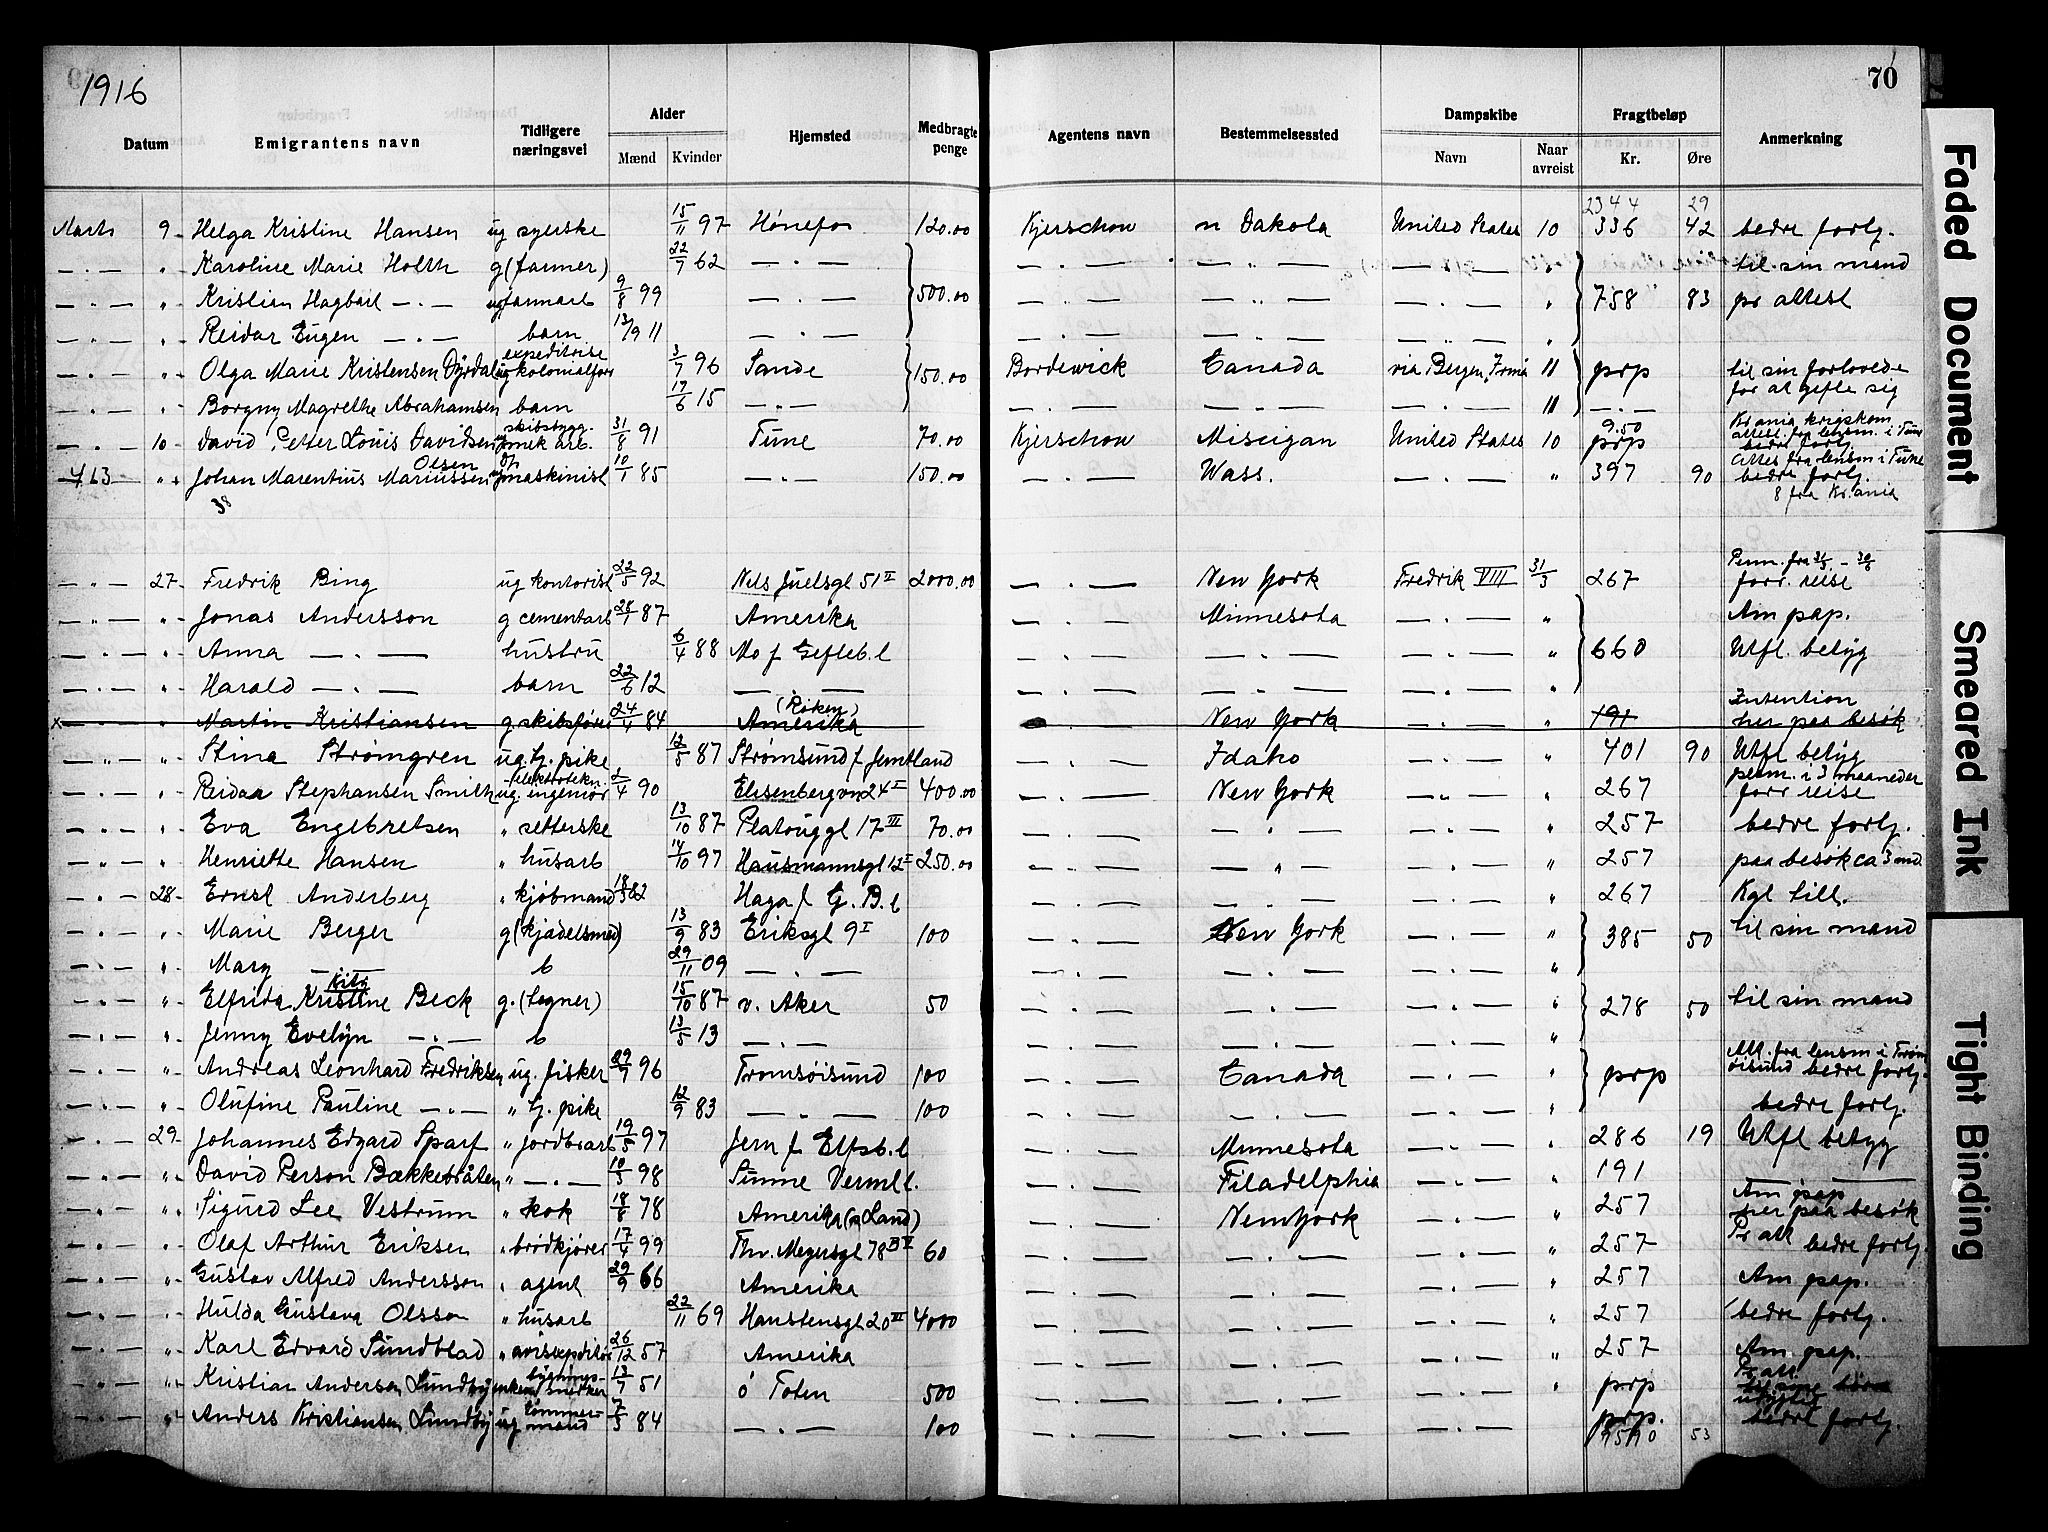 1916
70
Datum | Emigrantens navn | Tidligere næringsvei | Alder | Mænd | Kvinder | Hjemsted | Medbragte penge | Agentens navn | Bestemmelsessted | Dampskibe | Navn | Naar avreist | Fragtbeløp | Kr. | Øre | Anmerkning
2344 29
Marts 9 - Helga Kristine Hansen ug syerske 15/11 97 Hønefos 120.00 Kjerschow n Dakota United States 10 336 42 bedre fortj.
— " — " Karoline Marie Holth g (farmer) 22/7 62 — " — — " — — " — — " — " til sin mand
— " — " Kristian Hagbart — " — ug farmarb 9/8 99 — " — 500.00 — " — — " — — " — " 758 83 pr attest
— " — " Reidar Eugen — " — barn 13/9 11 — " — — " — — " — — " — "
— " — " Olga Marie Kristensen Dyrdal ug expeditrise kolonialforr 3/7 96 Sande 150.00 Bordewick Canada via Bergen, Irma 11 prp til sin forlovede for at gifte sig
— " — " Borgny Magrethe Abrahamsen barn 17/6 15 — " — — " — — " — — " — 11 — " —
— " — 10 - David Petter Louis Davidsen skibsbygg. mek arb. 31/8 91 Tune 70.00 Kjerschow Miscigan United States 10 9.50 prp Kr.ania krigskom. attest fra lensm. i Tune bedre fortj.
463 " Johan Marentius Mariussen Olsen maskinist 10/1 85 — " — 150.00 — " — Wass. — " — " 397 90 Attes fra lensm i Tune bedre fortj.
38 8 fra Kr.ania
— " — 27 - Fredrik Bing ug kontorist 22/5 92 Nils Juelsgt 51 II 2000.00 — " — New York Fredrik VIII 31/3 267 Perm. fra 31/3 - 30/6 forr. reise
— " — " Jonas Andersson g cementarb 28/1 87 Amerika — " — Minnesota — " — " Am pap.
— " — " Anna — " — hustru 6/4 88 Mo f Gefleb. l — " — — " — — " — " 660 Utfl. betyg
— " — " Harald — " — barn 22/6 12 — " — — " — — " — — " — "
x — " — " Martin Kristiansen g skibsfører 24/4 84 (Røken) Amerika New York — " — " 191 Intention her paa besøk
— " — " Stina Strømgren ug. tj. pike 12/5 87 Strømsund f Jemtland — " — Idaho — " — " 401 90 Utfl betyg
— " — " Reidar Stephansen Smith ug. elektrotekn. ingeniør 2/4 90 Elisenbergvn 24 I 400.00 — " — New York — " — " 267 perm. i 3 maaneder forr reise
— " — " Eva Engebretsen " setterske 13/10 87 Platouggt 17 III 70.00 — " — — " — — " — " 257 bedre fortj.
— " — " Henriette Hansen " husarb 14/10 97 Hausmannsgt 12 I 250.00 — " — — " — — " — " 257 paa besøk ca 3 md.
— " — 28 - Ernst Anderberg " kjøbmand 18/3 82 Haga f G. B. l — " — — " — — " — " 267 Kgl till.
— " — " Marie Berger g (kjadelsmed) 13/9 83 Eriksgt 9 I 100 — " — New York — " — " 385 50 til sin mand
— " — " Mary — " — b 29/11 09 — " — — " — — " — — " — "
— " — " Elfrida Kristine Beck g. (tegner) 15/10 87 v. Aker 50 — " — — " — — " — " 278 50 til sin mand
— " — " Jenny Evelyn — " — b 13/5 13 — " — — " — — " — — " — "
— " — " Andreas Leonhard Fredriksen ug. fisker 29/7 96 Tromsøisund 100 — " — Canada — " — " prp Att. fra lensm i Tromsøisund bedre fortj.
— " — " Olufine Pauline — " — " tj. pike 12/9 83 — " — 100 — " — — " — — " — " bedre fortj.
— " — 29 - Johannes Edgard Sparf " jordbrarb 19/5 97 Jern f Elfsb. l — " — Minnesota — " — " 286 19 Utfl betyg
— " — " David Person Bækkebråten " — " — 10/3 98 Sunne Verml l. — " — Filadelphia — " — " 191 — " —
— " — " Sigurd Lee Vestrum " kok 18/8 78 Amerika (n Land) — " — New York — " — " 257 Am pap her paa besøk
— " — " Olaf Arthur Eriksen " brødkjører 17/4 99 Thv. Meyersgt 78 B V 60 — " — — " — — " — " 257 Pr att bedre fortj.
— " — " Gustav Alfred Andersson " agent 29/9 66 Amerika — " — — " — — " — " 257 Am pap.
— " — " Hulda Gustava Olsson " husarb 22/11 69 Hanstensgt 20 III 4000 — " — — " — — " — " 257 bedre fortj.
— " — " Karl Edvard Sundblad " avisexpeditør 26/12 57 Amerika — " — — " — — " — " 257 Am. pap.
— " — " Kristian Andersen Lundby enkem bygnings- snedker 13/7 51 ö Toten 500 — " — — " — — " — " prp Pr att.
— " — " Anders Kristiansen Lundby ug tømmermand 7/3 84 — " — 100 — " — — " — — " — prp. bedre fortj.
53
Faded Document
Smeared Ink
Tight Binding